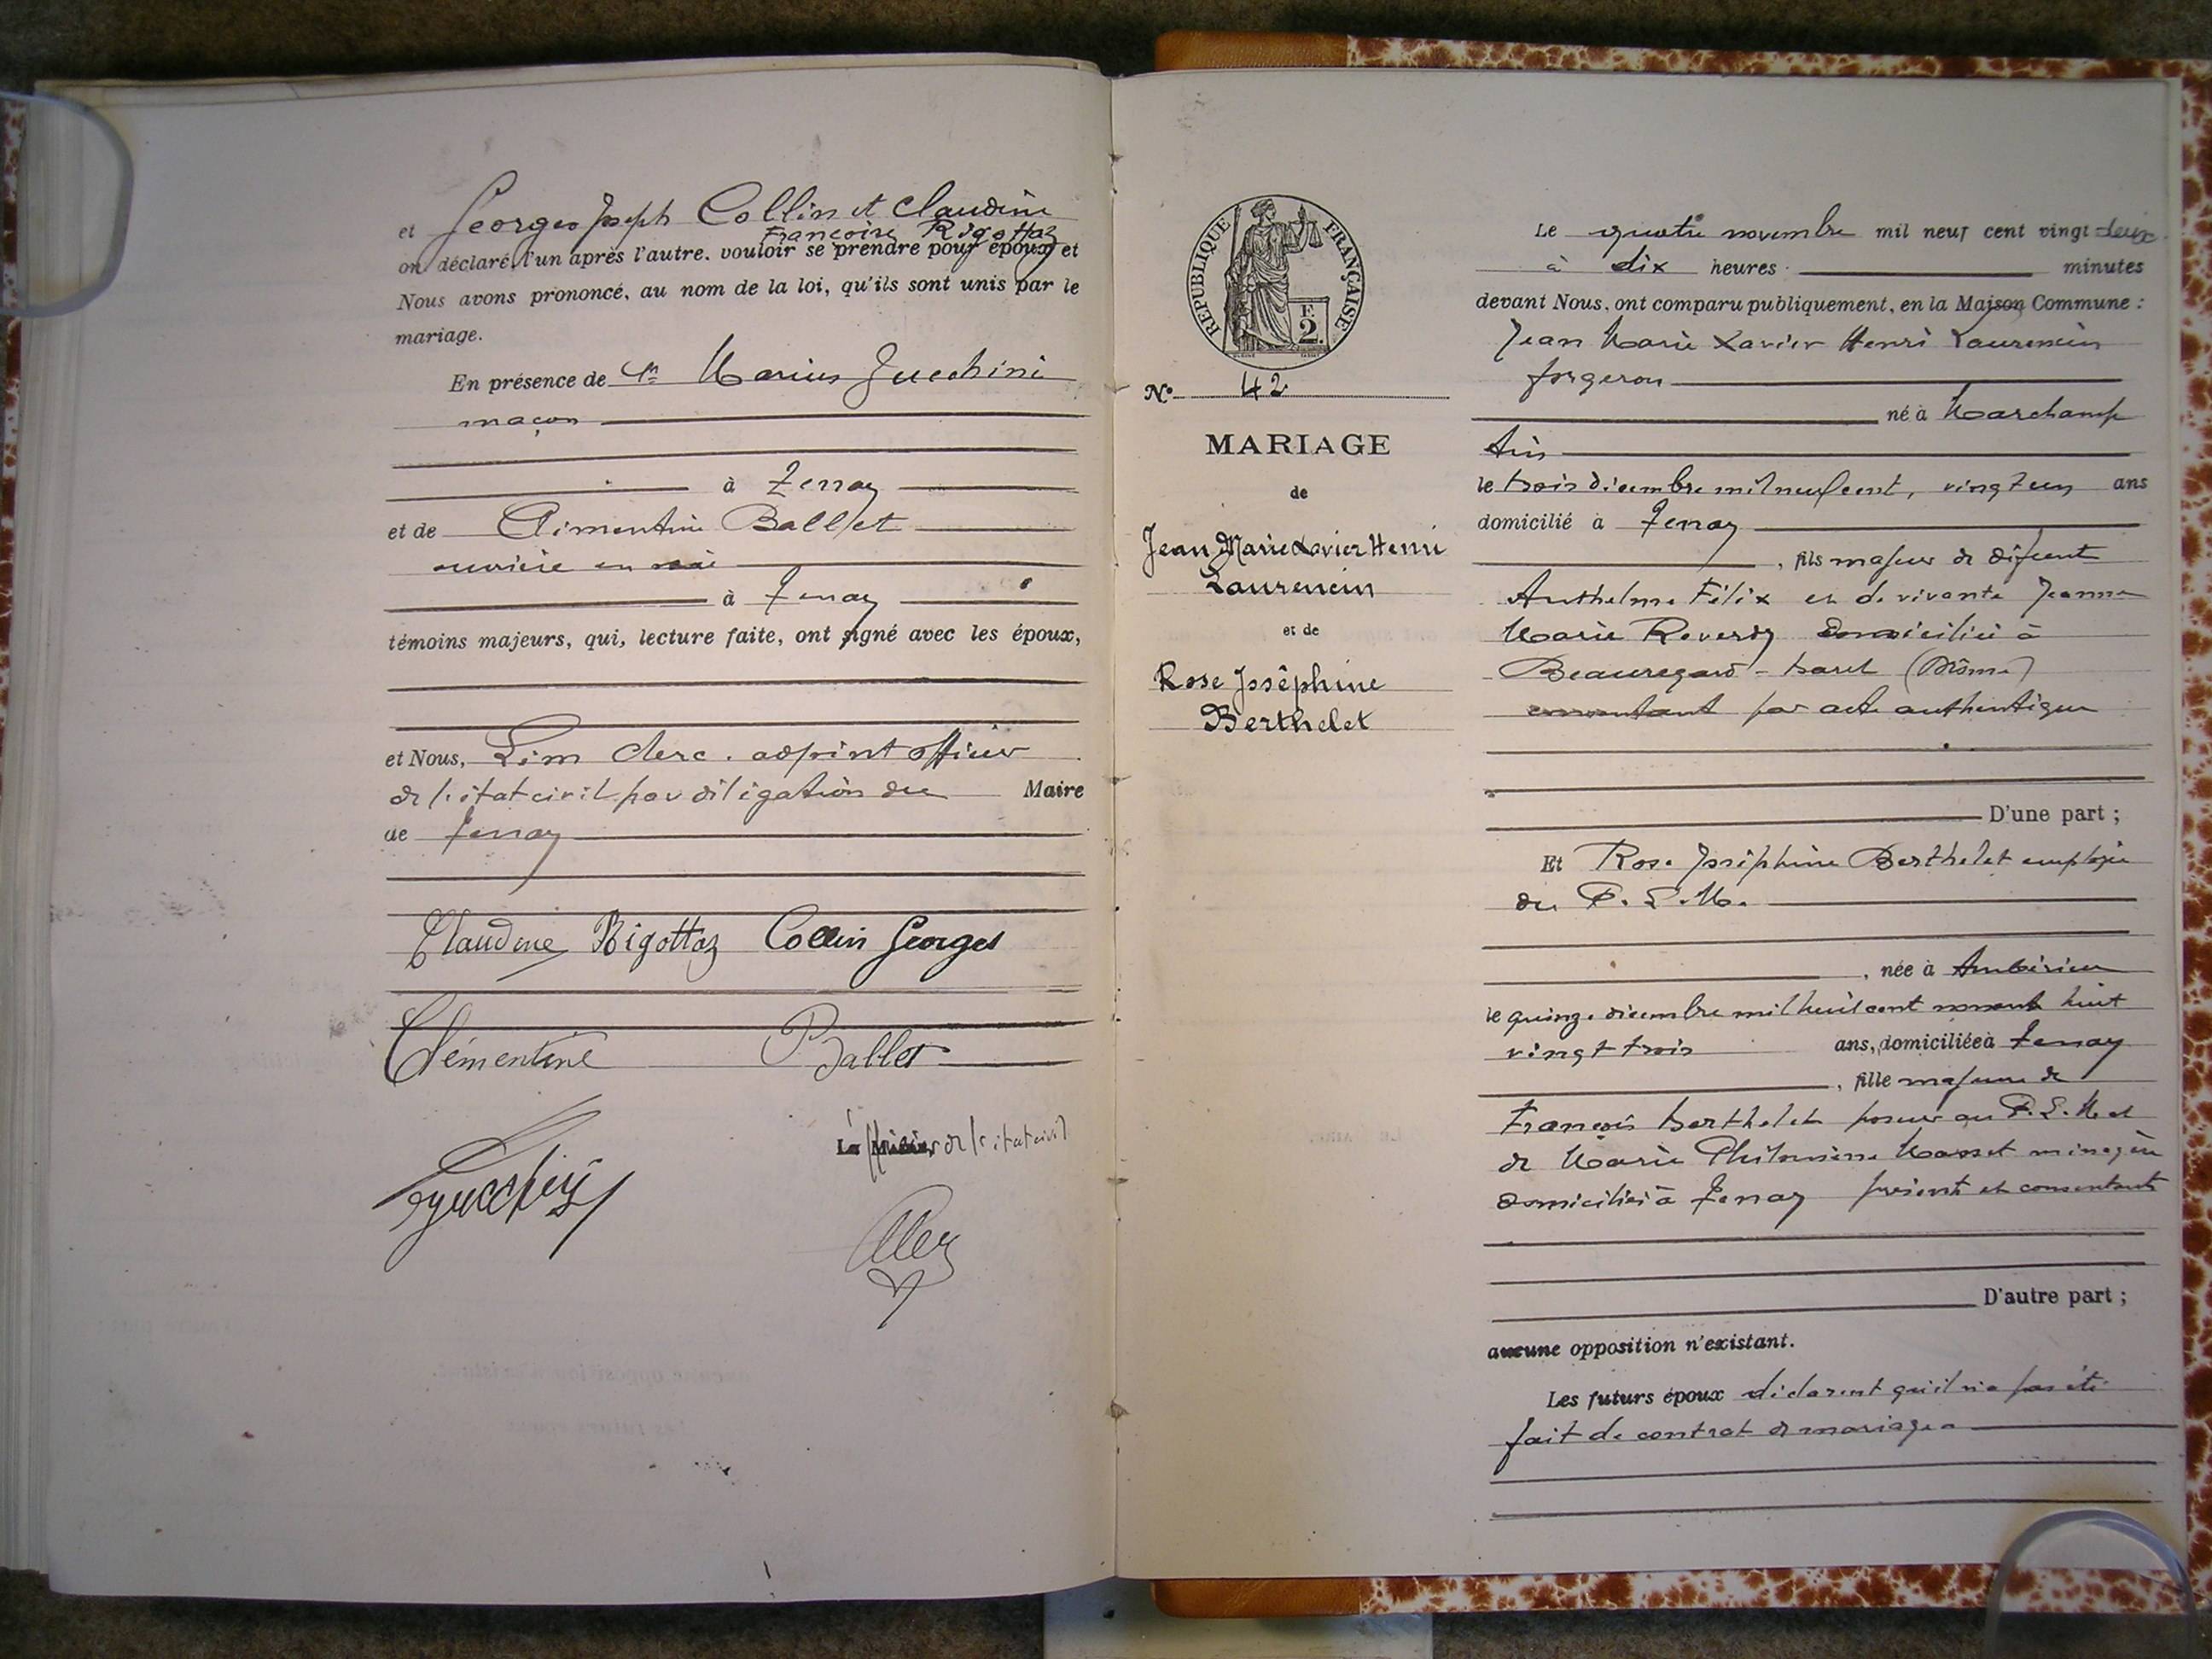 et Georges Joseph Collin et Claudine
Françoise Rigottaz
on déclaré l'un après l'autre. vouloir se prendre pour époux et
Nous avons prononcé, au nom de la loi, qu'ils sont unis par le
mariage.
En présence de Marius Zucchini
maçon
à Tenay
et de Clémentine Ballet
ouvrière en soie
à Tenay
témoins majeurs, qui, lecture faite, ont signé avec les époux,
et Nous, Léon Clerc. adjoint officier
de l'état civil par délégation du Maire
de Tenay
Claudine Rigottaz Collin Georges
Clémentine Ballet
Zucchini
Le officier de l'état civil
Clerc
RÉPUBLIQUE FRANÇAISE
F.
2.
N° 42
MARIAGE
de
Jean Marie Xavier Henri
Laurencin
et de
Rose Joséphine
Berthelet
Le quatre novembre mil neuf cent vingt deux
à dix heures minutes
devant Nous, ont comparu publiquement, en la Maison Commune :
Jean Marie Xavier Henri Laurencin
forgeron
né à Marchamp
Ain
le trois décembre mil neuf cent, vingt un ans
domicilié à Tenay
, fils majeur de défunt
Anthelme Félix et de vivante Jeanne
Marie Reverdy domiciliée à
Beauregard-Baret (Drôme)
consentant par acte authentique
D'une part ;
Et Rose Joséphine Berthelet employée
du P. L. M.
, née à Ambérieu
le quinze décembre mil huit cent nonante huit
vingt trois ans, domiciliée à Tenay
, fille majeure de
François Berthelet poseur au P. L. M. et
de Marie Philomène Masset ménagère
domiciliés à Tenay présents et consentants
D'autre part ;
aucune opposition n'existant.
Les futurs époux déclarent qu'il n'a pas été
fait de contrat de mariage.